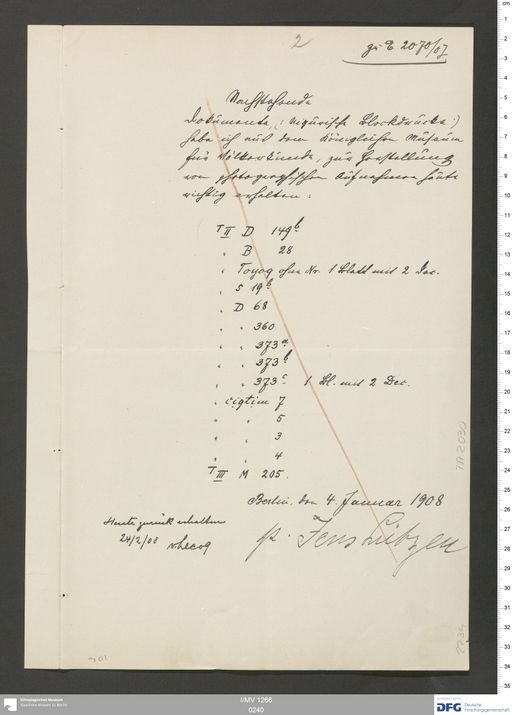 2
zu E 2070/07
Nachstehende
Dokumente, (: uigurische Blockdrucke :)
habe ich aus dem Königlichen Museum
für Völkerkunde, zur Herstellung
von photographischen Aufnahmen heute
richtig erhalten:
T II D 149b
" B 28
" Toyoq ohne Nr. 1 Blatt mit 2 Dec.
" S 19b
" D 68
" " 360
" " 373a
" " 373b
" " 373c 1 Bl. mit 2 Dec.
" čiqtim 7
" " 5
" " 3
" " 4
T III M 205.
Berlin, den 4. Januar 1908
p. Jens Lützen
Heute zurück erhalten
24/2/08 vLecoq
I/MV 1266
0240
Ethnologisches Museum
Staatliche Museen zu Berlin
DFG Deutsche
Forschungsgemeinschaft